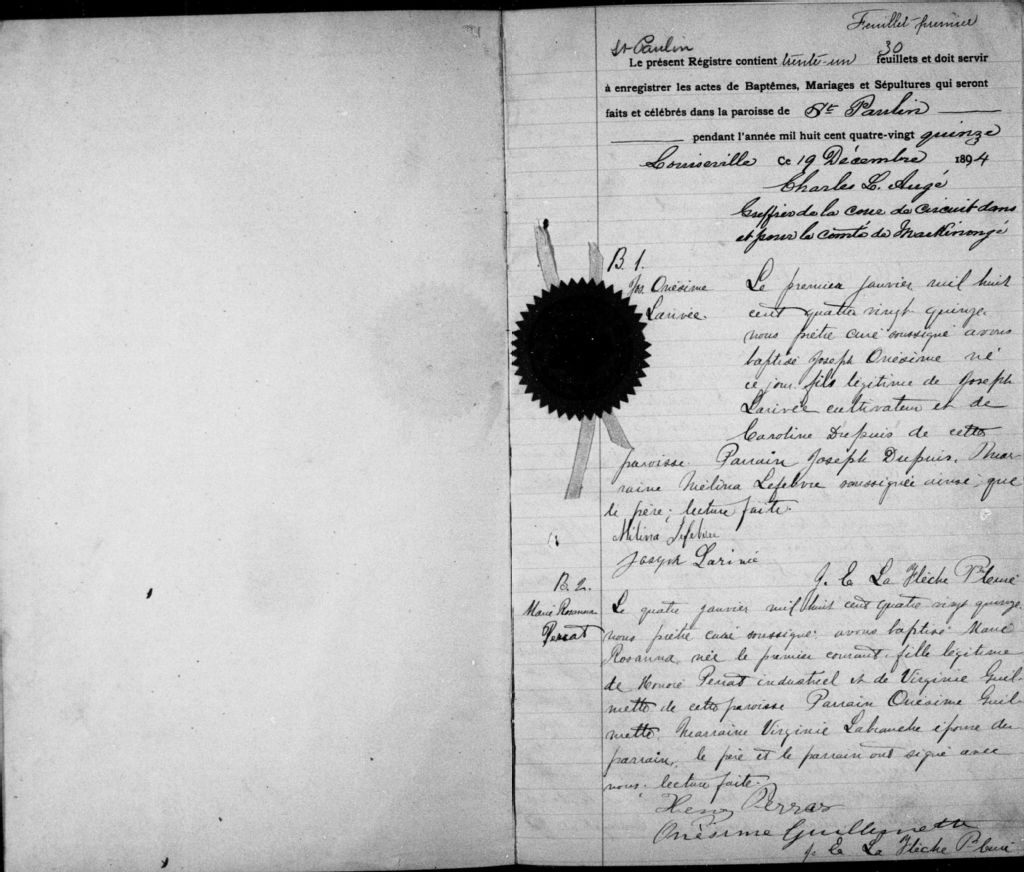 Feuillet premier
St Paulin
Le présent Régistre contient trente-un 30 feuillets et doit servir
à enregistrer les actes de Baptêmes, Mariages et Sépultures qui seront
faits et célébrés dans la paroisse de St Paulin
pendant l'année mil huit cent quatre-vingt quinze
Louiseville Ce 19 Décembre 1894
Charles L. Augé
Greffier de la cour de circuit dans
et pour le comté de Maskinongé
B. 1.
Jos. Onésime
Larivée.
Le premier janvier mil huit
cent quatre vingt quinze
nous prêtre curé soussigné avons
baptisé Joseph Onésime né
ce jour fils légitime de Joseph
Larivée cultivateur et de
Caroline Dupuis de cette
paroisse. Parrain Joseph Dupuis, Mar-
raine Mélina Lefebvre soussignée ainsi que
le père; lecture faite.
Milina Lefebvre
Joseph Larivié
J. E. La Flèche Ptre curé
B. 2.
Marie Rosanna
Perrat
Le quatre janvier mil huit cent quatre vingt quinze
nous prêtre curé soussigné avons baptisé Marie
Rosanna née le premier courant fille légitime
de Honoré Perrat industriel et de Virginie Guil-
mette de cette paroisse Parrain Onésime Guil-
mette Marraine Virginie Labranche épouse du
parrain, le père et le parrain ont signé avec
nous. lecture faite.
Perras
Onésime Guillemette
J. E. La Flèche Ptre curé